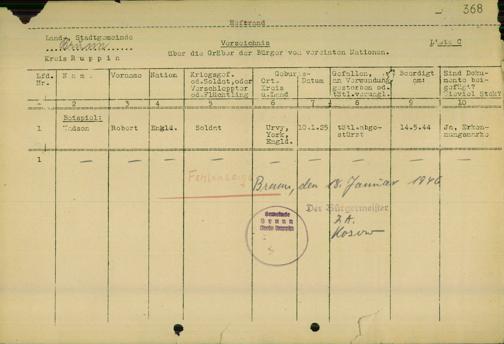 368
Heftrand
Land-, Stadtgemeinde
Brunn
Kreis Ruppin
Verzeichnis
Liste C
über die Gräber der Bürger von vereinten Nationen.
Lfd. Nr. Name Vorname Nation Kriegsgef. od.Soldat,oder Verschleppter od.Flüchtling Geburts- Ort, Kreis u.Land Datum Gefallen, an Verwundung gestorben od. tötl.verungl. Beerdigt am: Sind Dokumente beigefügt? Wieviel Stck?
1 2 3 4 5 6 7 8 9 10
Beispiel:
1 Hudson Robert Engld. Soldat Urvy, York, Engld. 10.1.25 tötl.abgestürzt 14.5.44 Ja, Erkennungsmarke
1 — — — — — — — — —
Fehlanzeige
Brunn, den 18. Januar 1946
Der Bürgermeister
Gemeinde
Brunn
Kreis Ruppin